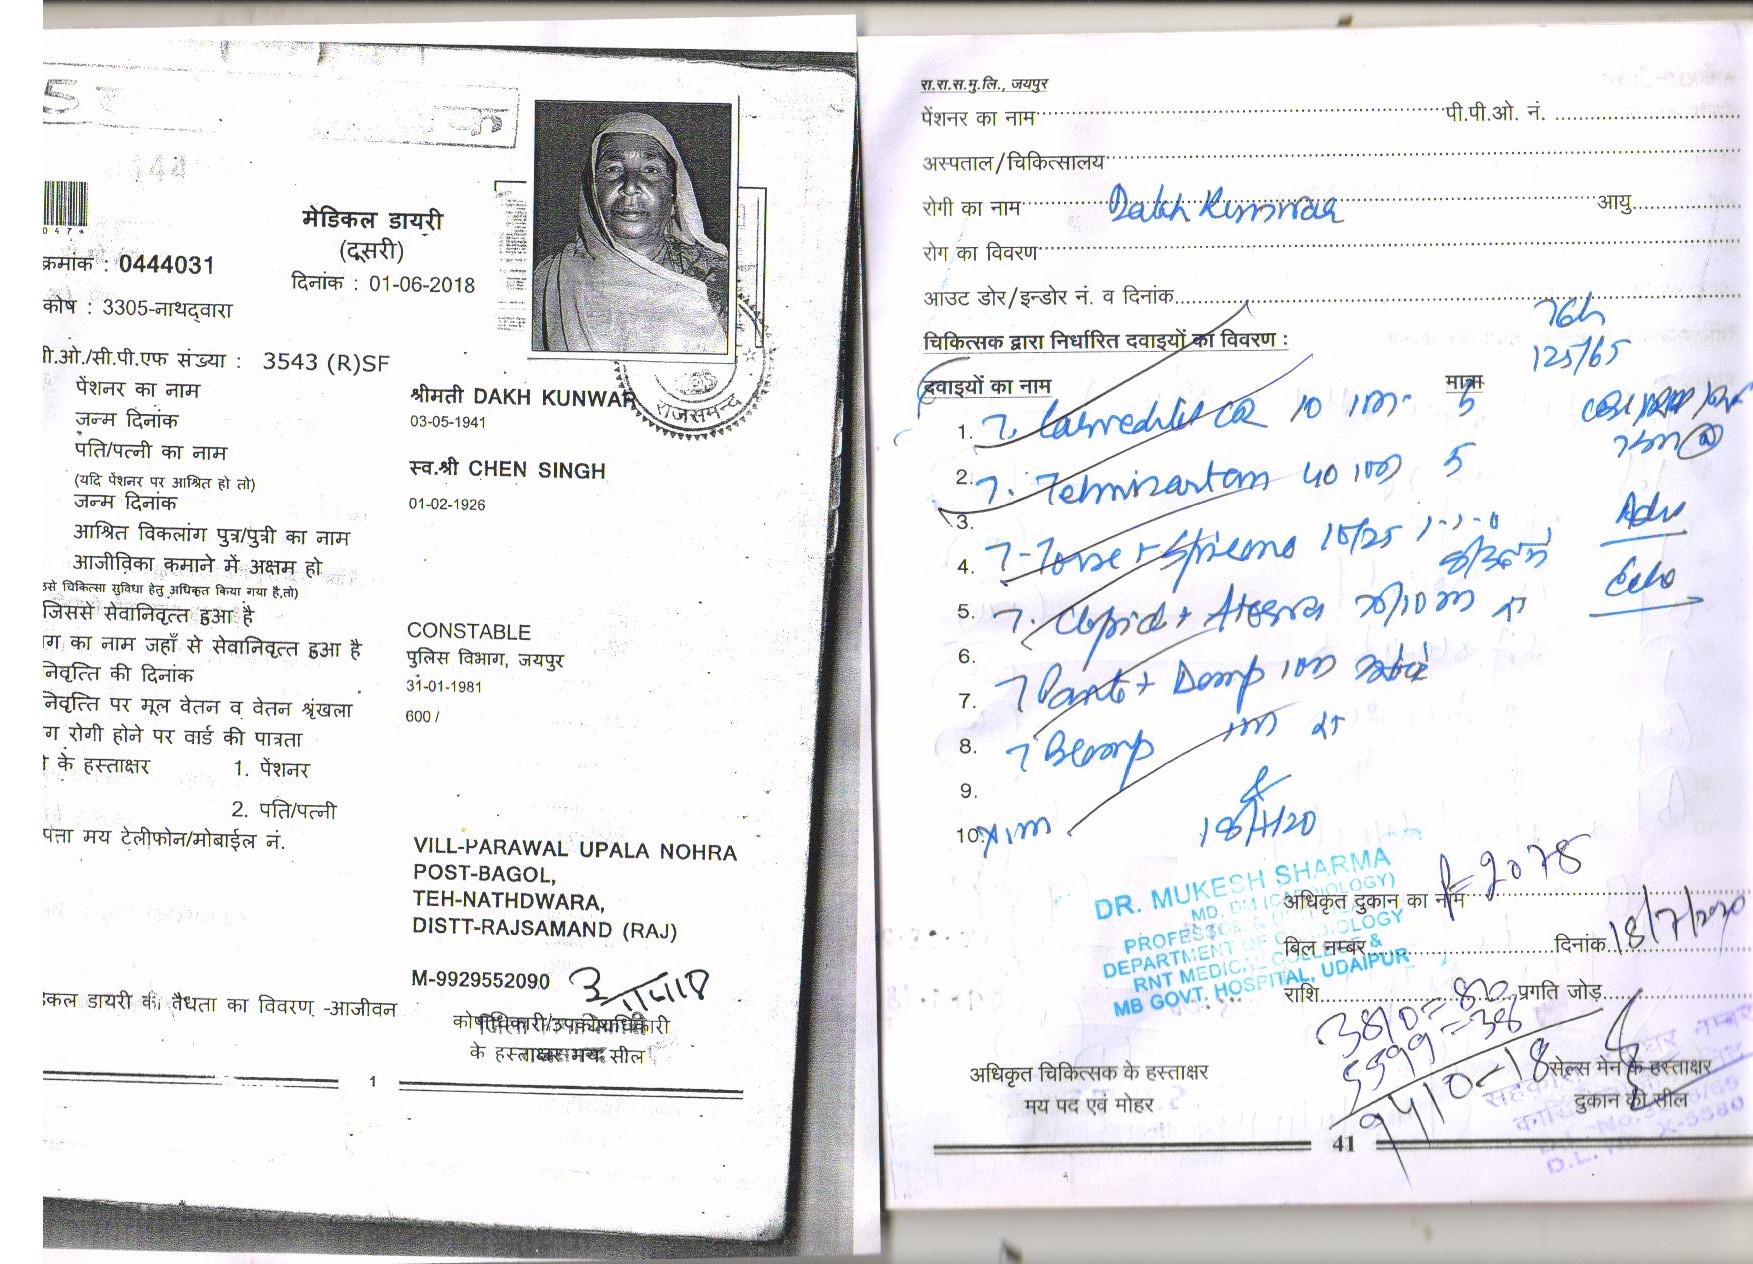 मेडिकल डायरी
(दूसरी)
क्रमांक : 0444031
दिनांक : 01-06-2018
कोष : 3305-नाथद्वारा
ी.ओ./सी.पी.एफ संख्या : 3543 (R)SF
पेंशनर का नाम श्रीमती DAKH KUNWAR
जन्म दिनांक 03-05-1941
पति/पत्नी का नाम स्व.श्री CHEN SINGH
(यदि पेंशनर पर आश्रित हो तो)
जन्म दिनांक 01-02-1926
आश्रित विकलांग पुत्र/पुत्री का नाम
आजीविका कमाने में अक्षम हो
उसे चिकित्सा सुविधा हेतु अधिकृत किया गया है,तो)
जिससे सेवानिवृत्त हुआ है CONSTABLE
ग का नाम जहाँ से सेवानिवृत्त हुआ है पुलिस विभाग, जयपुर
निवृत्ति की दिनांक 31-01-1981
निवृत्ति पर मूल वेतन व वेतन श्रृंखला 600 /
ग रोगी होने पर वार्ड की पात्रता
के हस्ताक्षर 1. पेंशनर
2. पति/पत्नी
पता मय टेलीफोन/मोबाईल नं. VILL-PARAWAL UPALA NOHRA
POST-BAGOL,
TEH-NATHDWARA,
DISTT-RAJSAMAND (RAJ)
M-9929552090
कल डायरी की वैधता का विवरण -आजीवन
के हस्ताक्षर मय सील
1
राजसमन्द
रा.रा.स.मु.लि., जयपुर
पेंशनर का नाम पी.पी.ओ. नं.
अस्पताल/चिकित्सालय
रोगी का नाम Dakh Kunwar आयु
रोग का विवरण
आउट डोर/इन्डोर नं. व दिनांक
76h
चिकित्सक द्वारा निर्धारित दवाइयों का विवरण :
125/65
दवाइयों का नाम मात्रा
1. T. CR 10 1m
2. T. Telmisartan 40 1m
3.
4. T- 10/25 1-1-0
Adv
Echo
5. T. Clopid + Atorva 75/10 m
6.
7. T Panto + Domp 1m
8. T Bcomp 1m
9.
10. x 1m
18/7/20
DR. MUKESH SHARMA
MD. DM (CARDIOLOGY)
PROFESSOR & UNIT
DEPARTMENT OF CARDIOLOGY
RNT MEDICAL COLLEGE &
MB GOVT. HOSPITAL, UDAIPUR
अधिकृत दुकान का नाम 2078
बिल नम्बर दिनांक 18/7/2020
राशि प्रगति जोड़
3810=80
5599=38
9410=18
अधिकृत चिकित्सक के हस्ताक्षर सेल्स मेन के हस्ताक्षर
मय पद एवं मोहर दुकान की सील
41